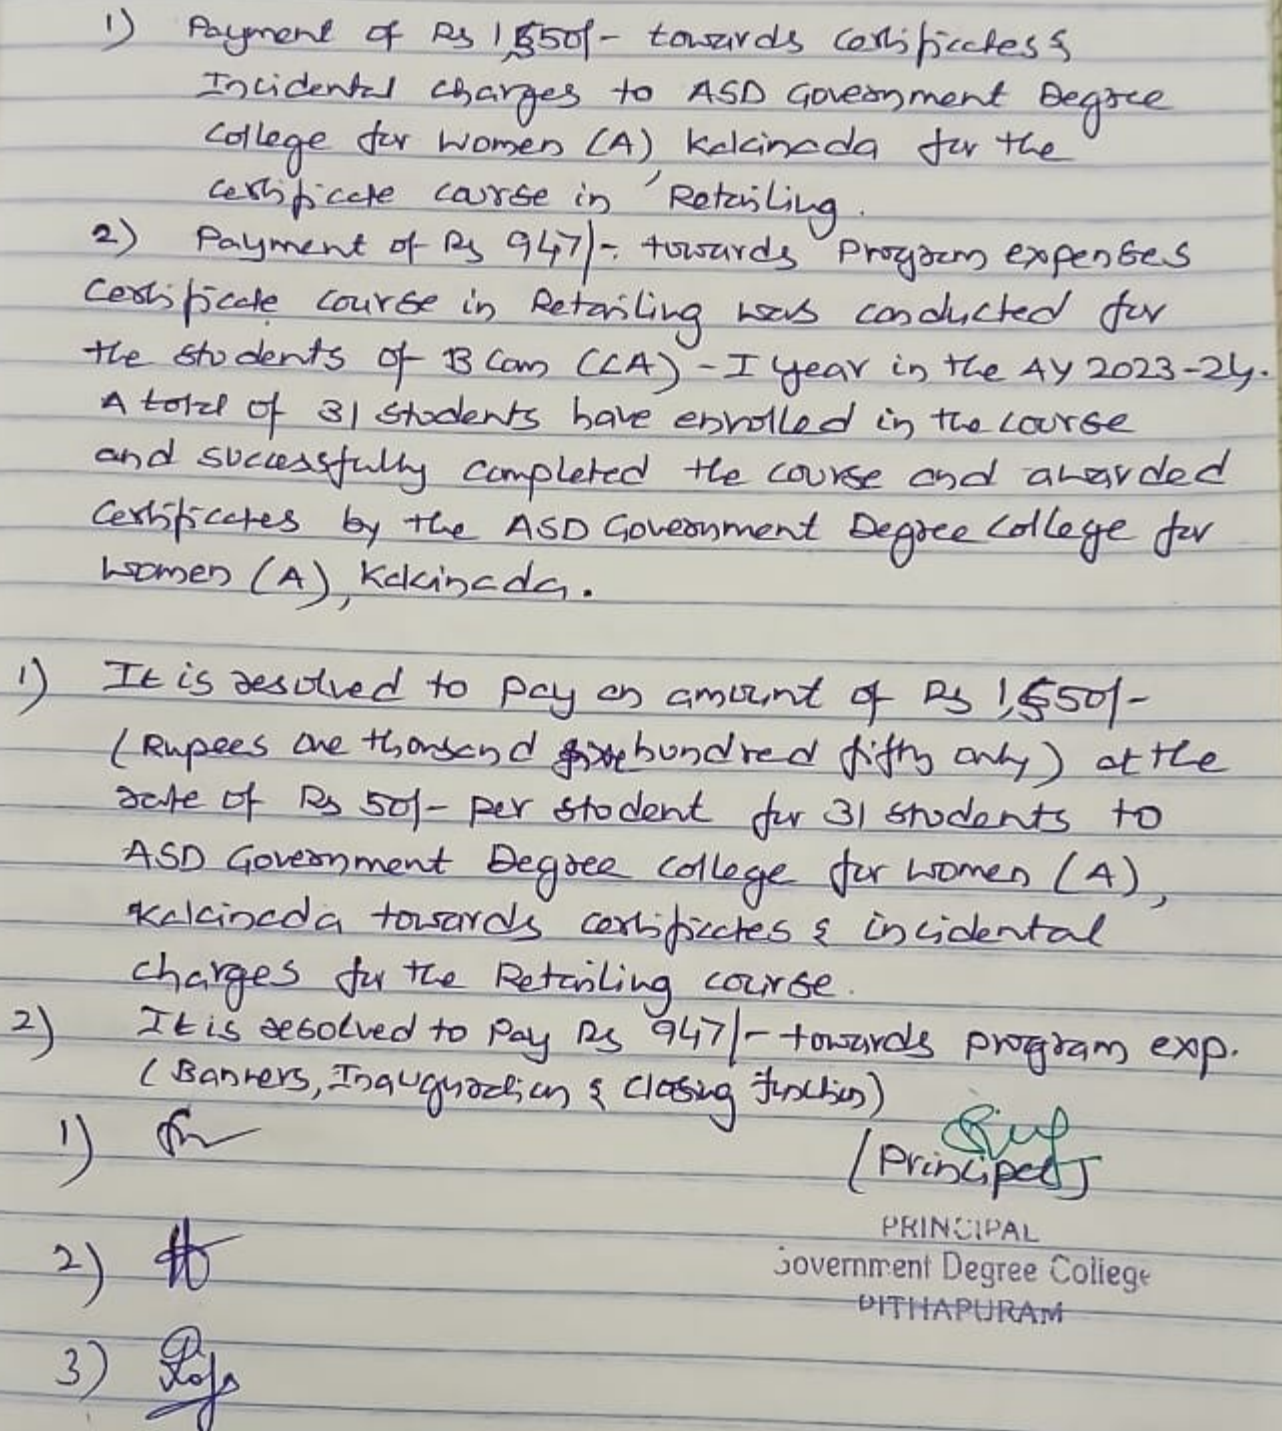 1) Payment of Rs 1,550/- towards certificates &
Incidental charges to ASD Government Degree
College for Women (A), Kakinada for the
certificate course in Retailing.
2) Payment of Rs 947/- towards Program expenses
Certificate course in Retailing was conducted for
the students of B Com (CA) - I year in the AY 2023-24.
A total of 31 students have enrolled in the course
and successfully completed the course and awarded
Certificates by the ASD Government Degree College for
Women (A), Kakinada.
1) It is resolved to pay an amount of Rs 1,550/-
(Rupees one thousand five hundred fifty only) at the
rate of Rs 50/- per student for 31 students to
ASD Government Degree College for Women (A),
Kakinada towards certificates & incidental
charges for the Retailing course.
2) It is resolved to Pay Rs 947/- towards program exp.
(Banners, Inauguration & Closing function)
1)
(Principal)
PRINCIPAL
2)
Government Degree College
PITHAPURAM
3)